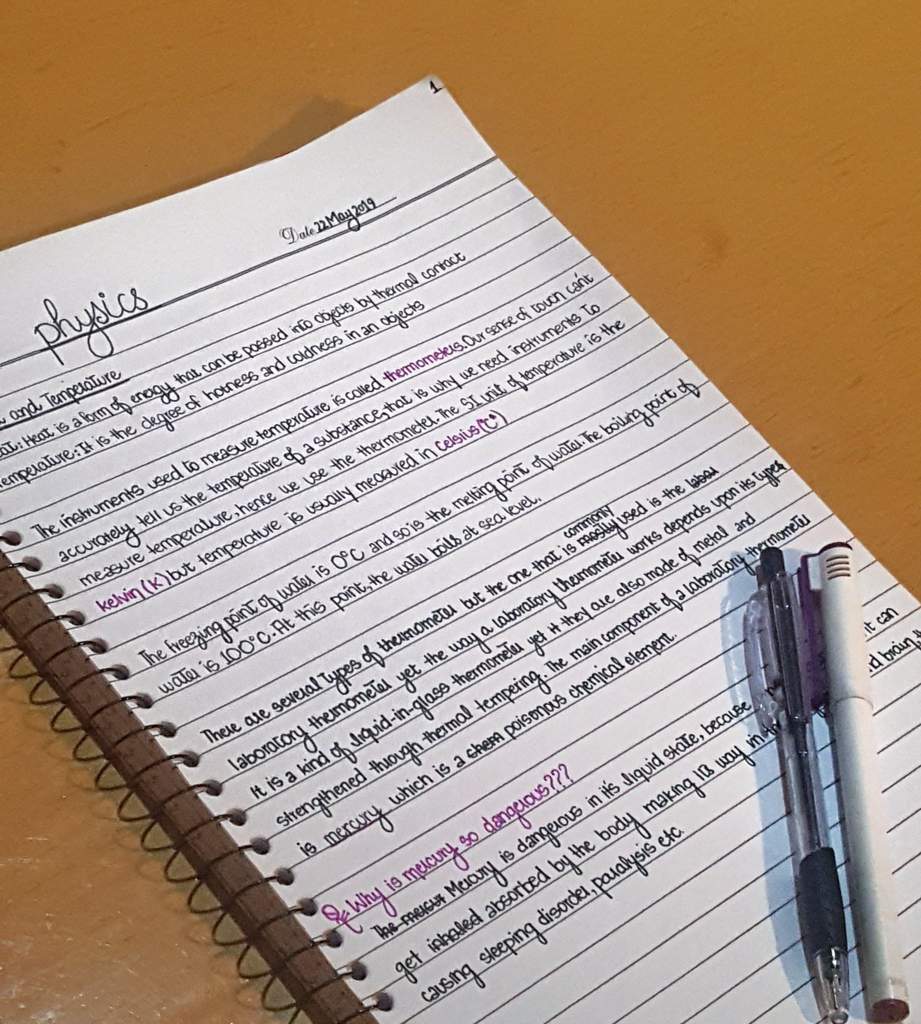 1
Date 22 May 2019
physics
and Temperature
Heat is a form of energy that can be passed into objects by thermal contact
emperature: It is the degree of hotness and coldness in an objects
The instruments used to measure temperature is called thermometers. Our sense of touch can't
accurately tell us the temperature of a substance, that is why we need instruments to
measure temperature, hence we use the thermometer. The SI unit of temperature is the
kelvin (K) but temperature is usually measured in celsius (°C)
The freezing point of water is 0°C and so is the melting point of water. The boiling point of
water is 100°C. At this point, the water boils at sea level.
There are several types of thermometer but the one that is commonly used is the labor
laboratory thermometer yet the way a laboratory thermometer works depends upon its types
It is a kind of liquid-in-glass thermometer yet it they are also made of metal and
strengthened through thermal tempering. The main component of a laboratory thermometer
is mercury which is a chem poisonous chemical element.
Q Why is mercury so dangerous???
The Mercury is dangerous in its liquid state, because it can
get inhaled absorbed by the body making its way in brain
causing sleeping disorder, paralysis etc.